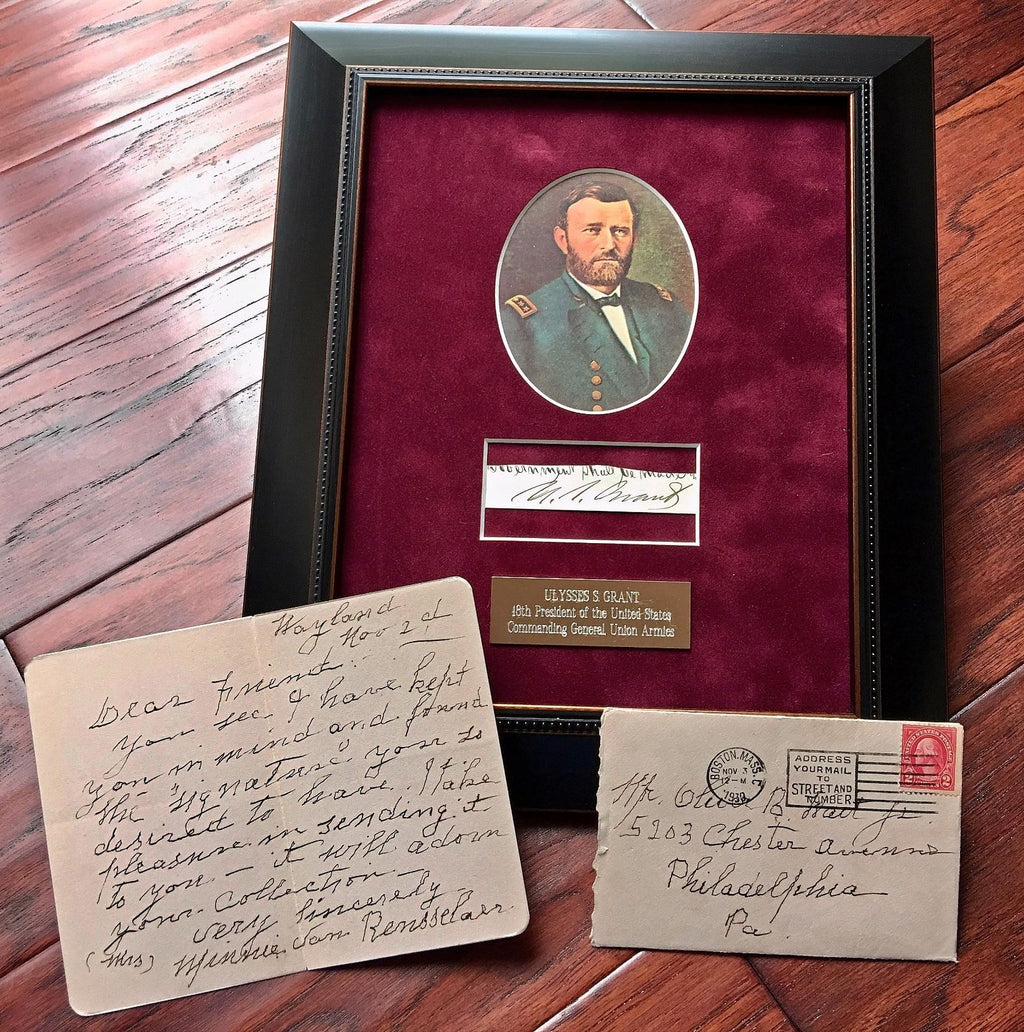 Government shall be made
U. S. Grant
ULYSSES S. GRANT
18th President of the United States
Commanding General Union Armies
Wayland
Nov 2d
Dear Friend:-
You see I have kept
you in mind and found
the "signature" you so
desired to have. I take
pleasure in sending it
to you – it will adorn
your collection –
very Sincerely
(Mrs) Minnie Van Rensselaer.
BOSTON, MASS.
NOV 3
12-M
ADDRESS
YOUR MAIL
TO
STREET AND
NUMBER
UNITED STATES POSTAGE
2 2
Mr. Oliver R. Jr.
5203 Chester avenue
Philadelphia
Pa.